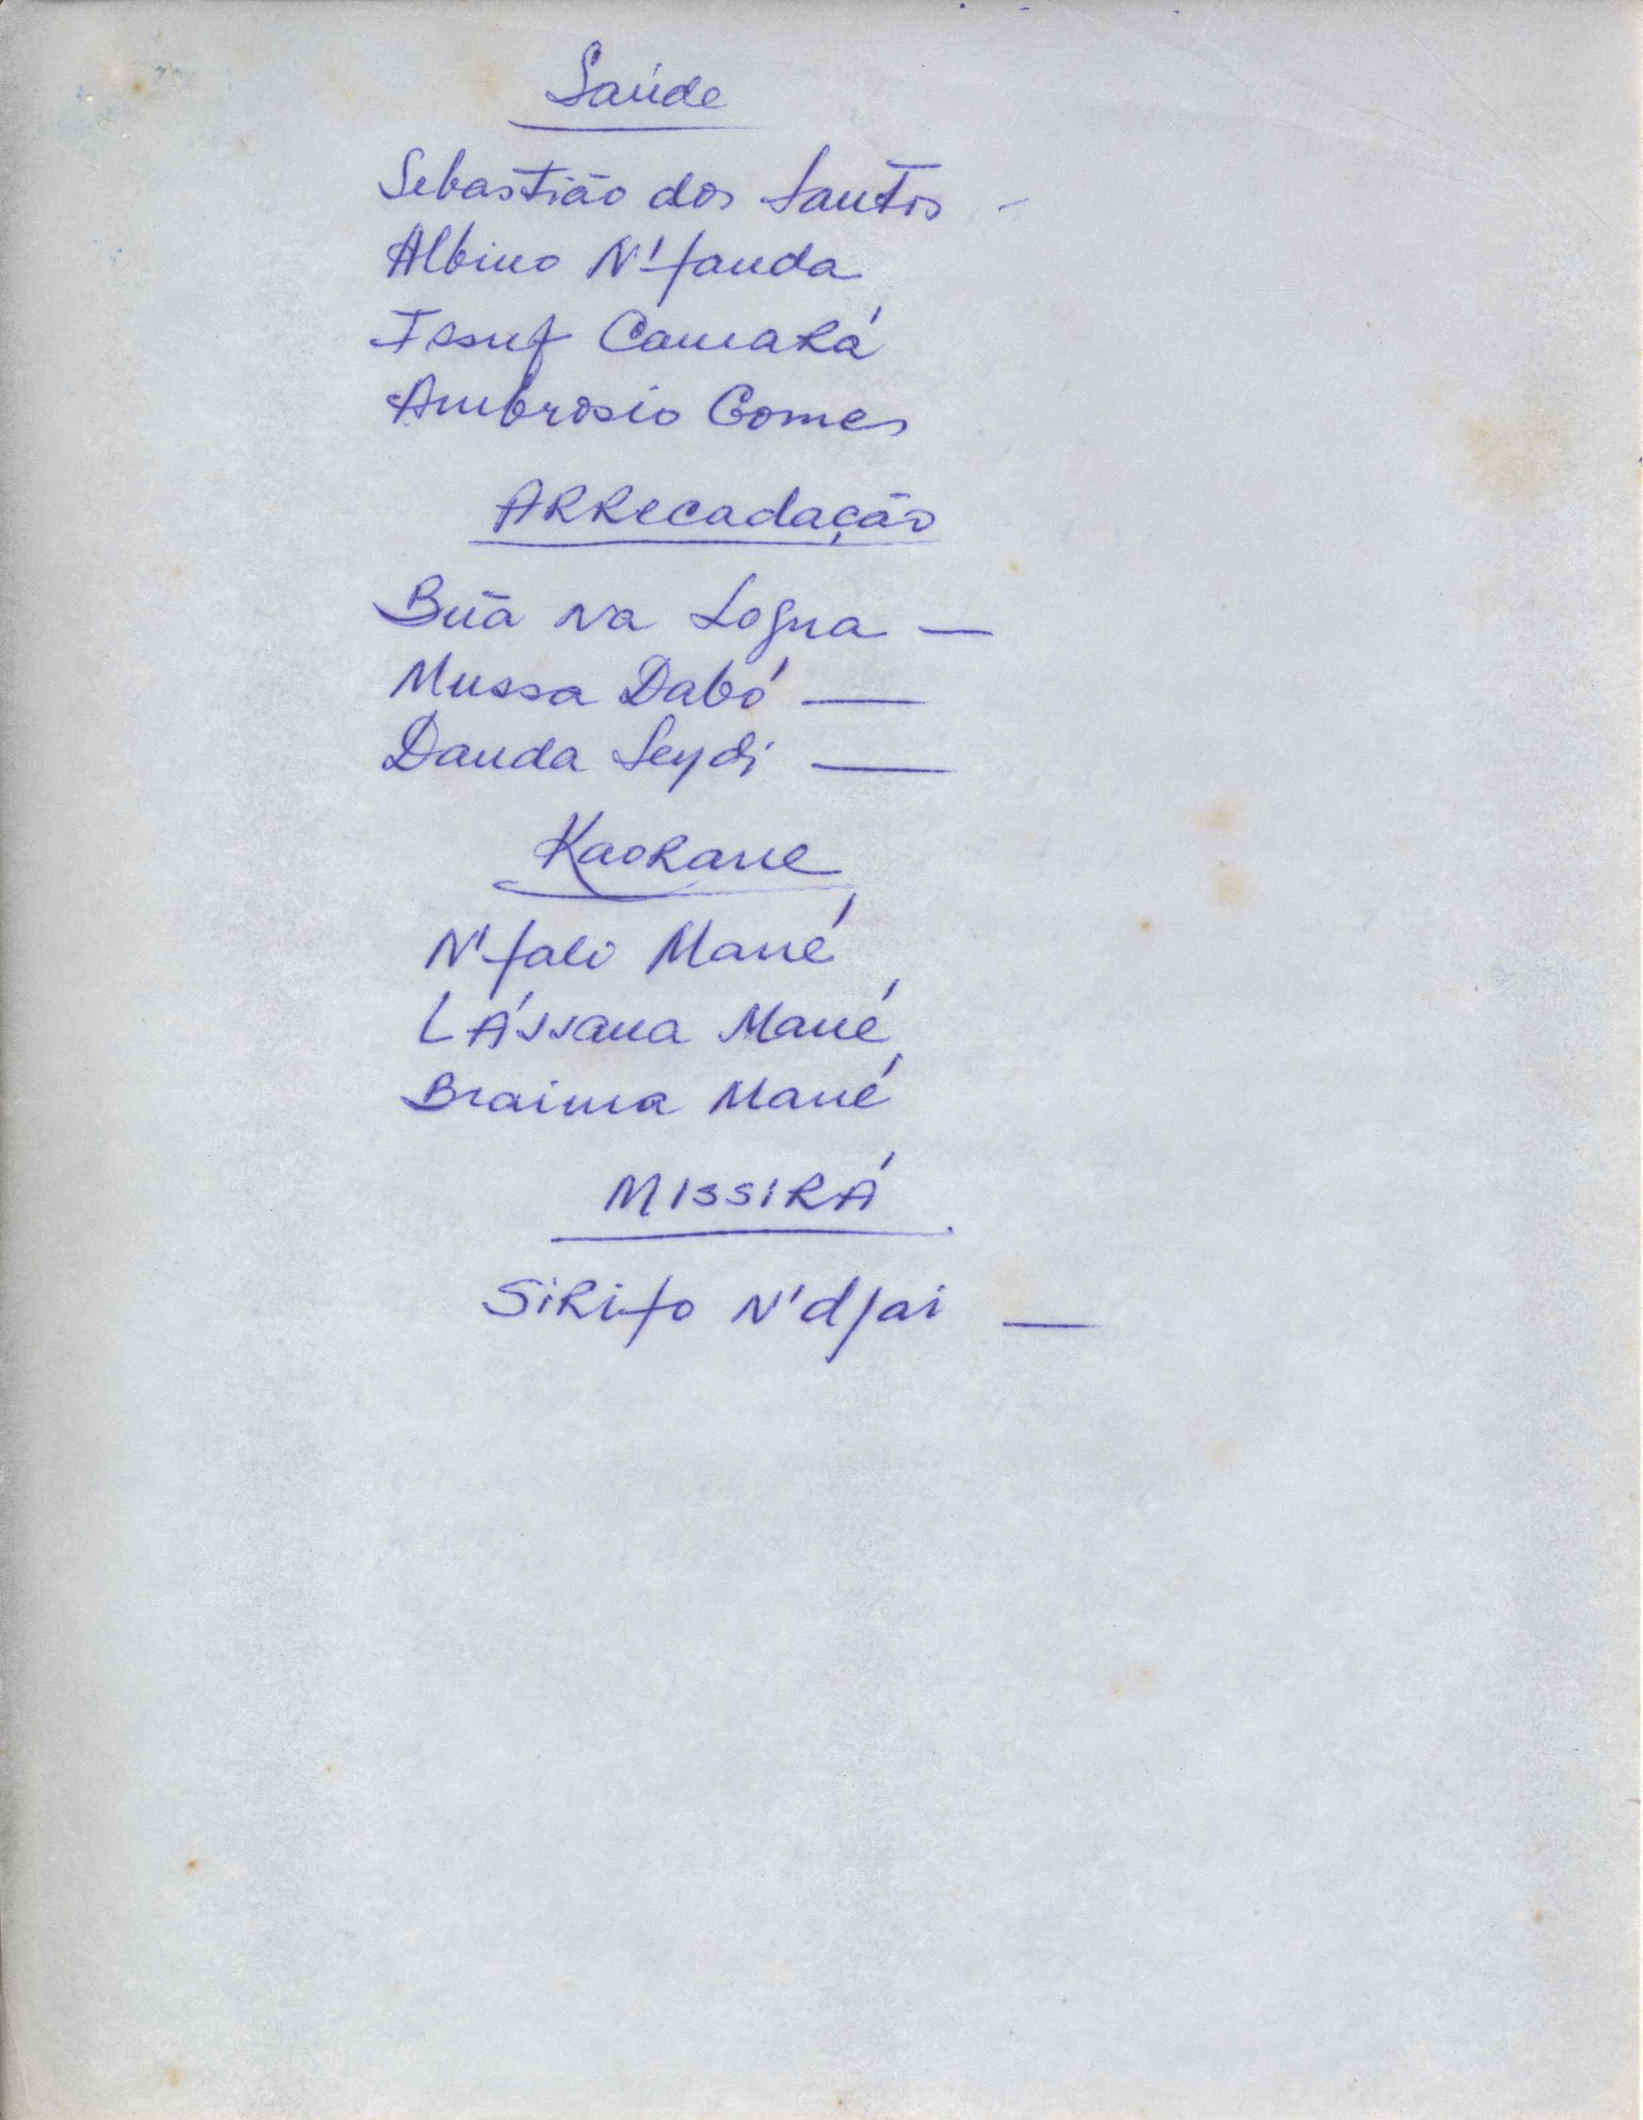 Saúde
Sebastião dos Santos -
Albino N'fanda
Issuf Camará
Ambrosio Gomes
ARRecadação
Buã na Logna —
Mussa Dabó —
Dauda Seydi —
Kaorane
N'fali Mané
LÁssana Mané
Braima Mané
MISSIRÁ
SiRifo N'djai —